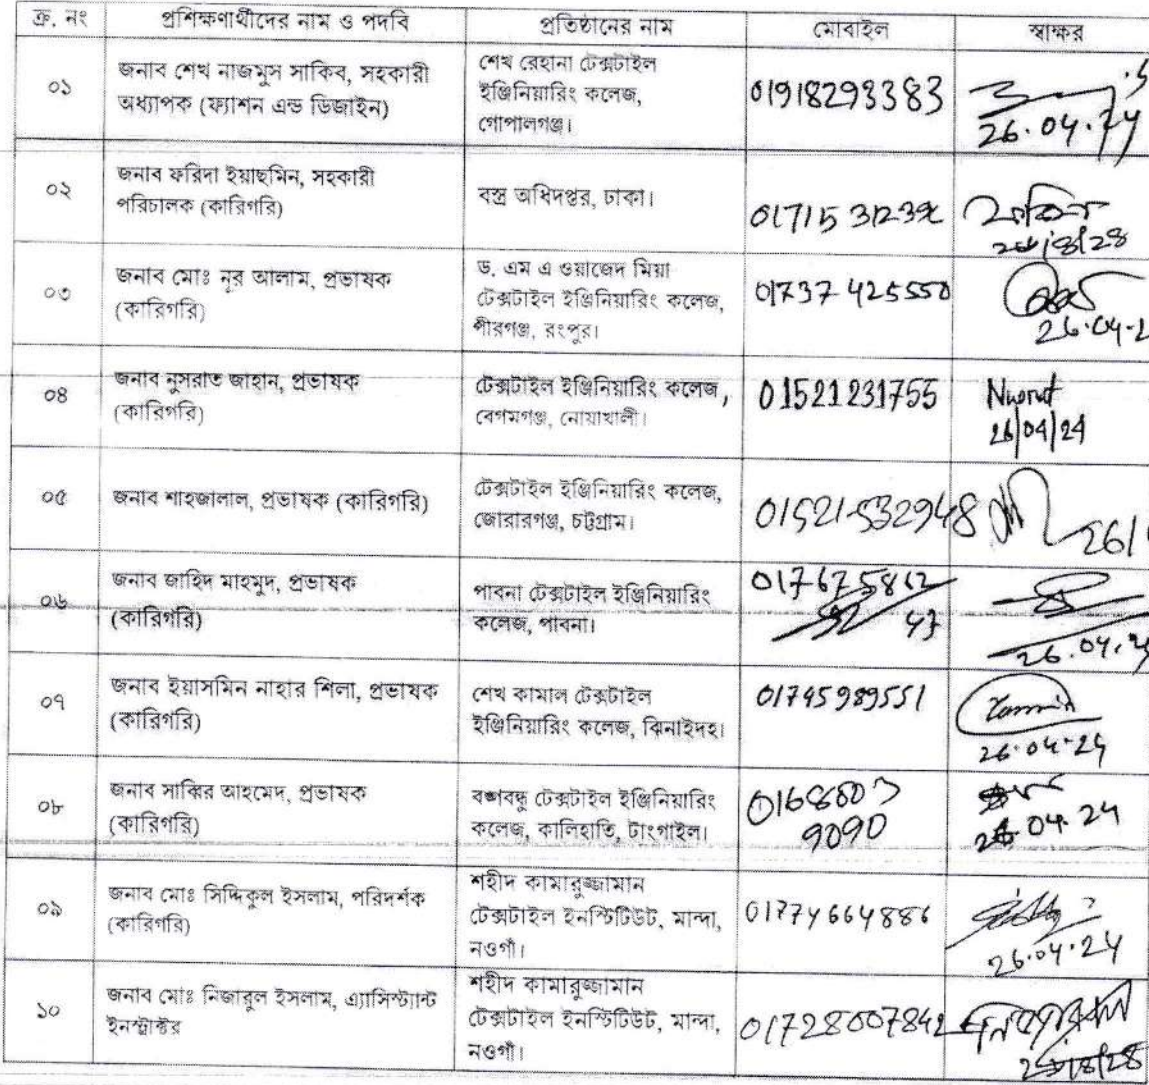 ক্র. নং প্রশিক্ষণার্থীদের নাম ও পদবি প্রতিষ্ঠানের নাম মোবাইল স্বাক্ষর
০১
জনাব শেখ নাজমুস সাকিব, সহকারী
অধ্যাপক (ফ্যাশন এন্ড ডিজাইন)
শেখ রেহানা টেক্সটাইল
ইঞ্জিনিয়ারিং কলেজ,
গোপালগঞ্জ।
01918293383
26.04.24
০২
জনাব ফরিদা ইয়াছমিন, সহকারী
পরিচালক (কারিগরি)
বস্ত্র অধিদপ্তর, ঢাকা।
০৩
জনাব মোঃ নূর আলাম, প্রভাষক
(কারিগরি)
ড. এম এ ওয়াজেদ মিয়া
টেক্সটাইল ইঞ্জিনিয়ারিং কলেজ,
পীরগঞ্জ, রংপুর।
01737425550
26.04.2
০৪
জনাব নুসরাত জাহান, প্রভাষক
(কারিগরি)
টেক্সটাইল ইঞ্জিনিয়ারিং কলেজ,
বেগমগঞ্জ, নোয়াখালী।
01521231755
Nusrat
26/04/24
০৫
জনাব শাহজালাল, প্রভাষক (কারিগরি)
টেক্সটাইল ইঞ্জিনিয়ারিং কলেজ,
জোরারগঞ্জ, চট্টগ্রাম।
01521532948
26/
০৬
জনাব জাহিদ মাহমুদ, প্রভাষক
(কারিগরি)
পাবনা টেক্সটাইল ইঞ্জিনিয়ারিং
কলেজ, পাবনা।
26.04.24
০৭
জনাব ইয়াসমিন নাহার শিলা, প্রভাষক
(কারিগরি)
শেখ কামাল টেক্সটাইল
ইঞ্জিনিয়ারিং কলেজ, ঝিনাইদহ।
01745989551
26.04.24
০৮
জনাব সাব্বির আহমেদ, প্রভাষক
(কারিগরি)
বঙ্গবন্ধু টেক্সটাইল ইঞ্জিনিয়ারিং
কলেজ, কালিহাতি, টাংগাইল।
9090
26.04.24
০৯
জনাব মোঃ সিদ্দিকুল ইসলাম, পরিদর্শক
(কারিগরি)
শহীদ কামারুজ্জামান
টেক্সটাইল ইনস্টিটিউট, মান্দা,
নওগাঁ।
01774664886
26.04.24
১০
জনাব মোঃ নিজারুল ইসলাম, এ্যাসিস্ট্যান্ট
ইনস্ট্রাক্টর
শহীদ কামারুজ্জামান
টেক্সটাইল ইনস্টিটিউট, মান্দা,
নওগাঁ।
01728007842